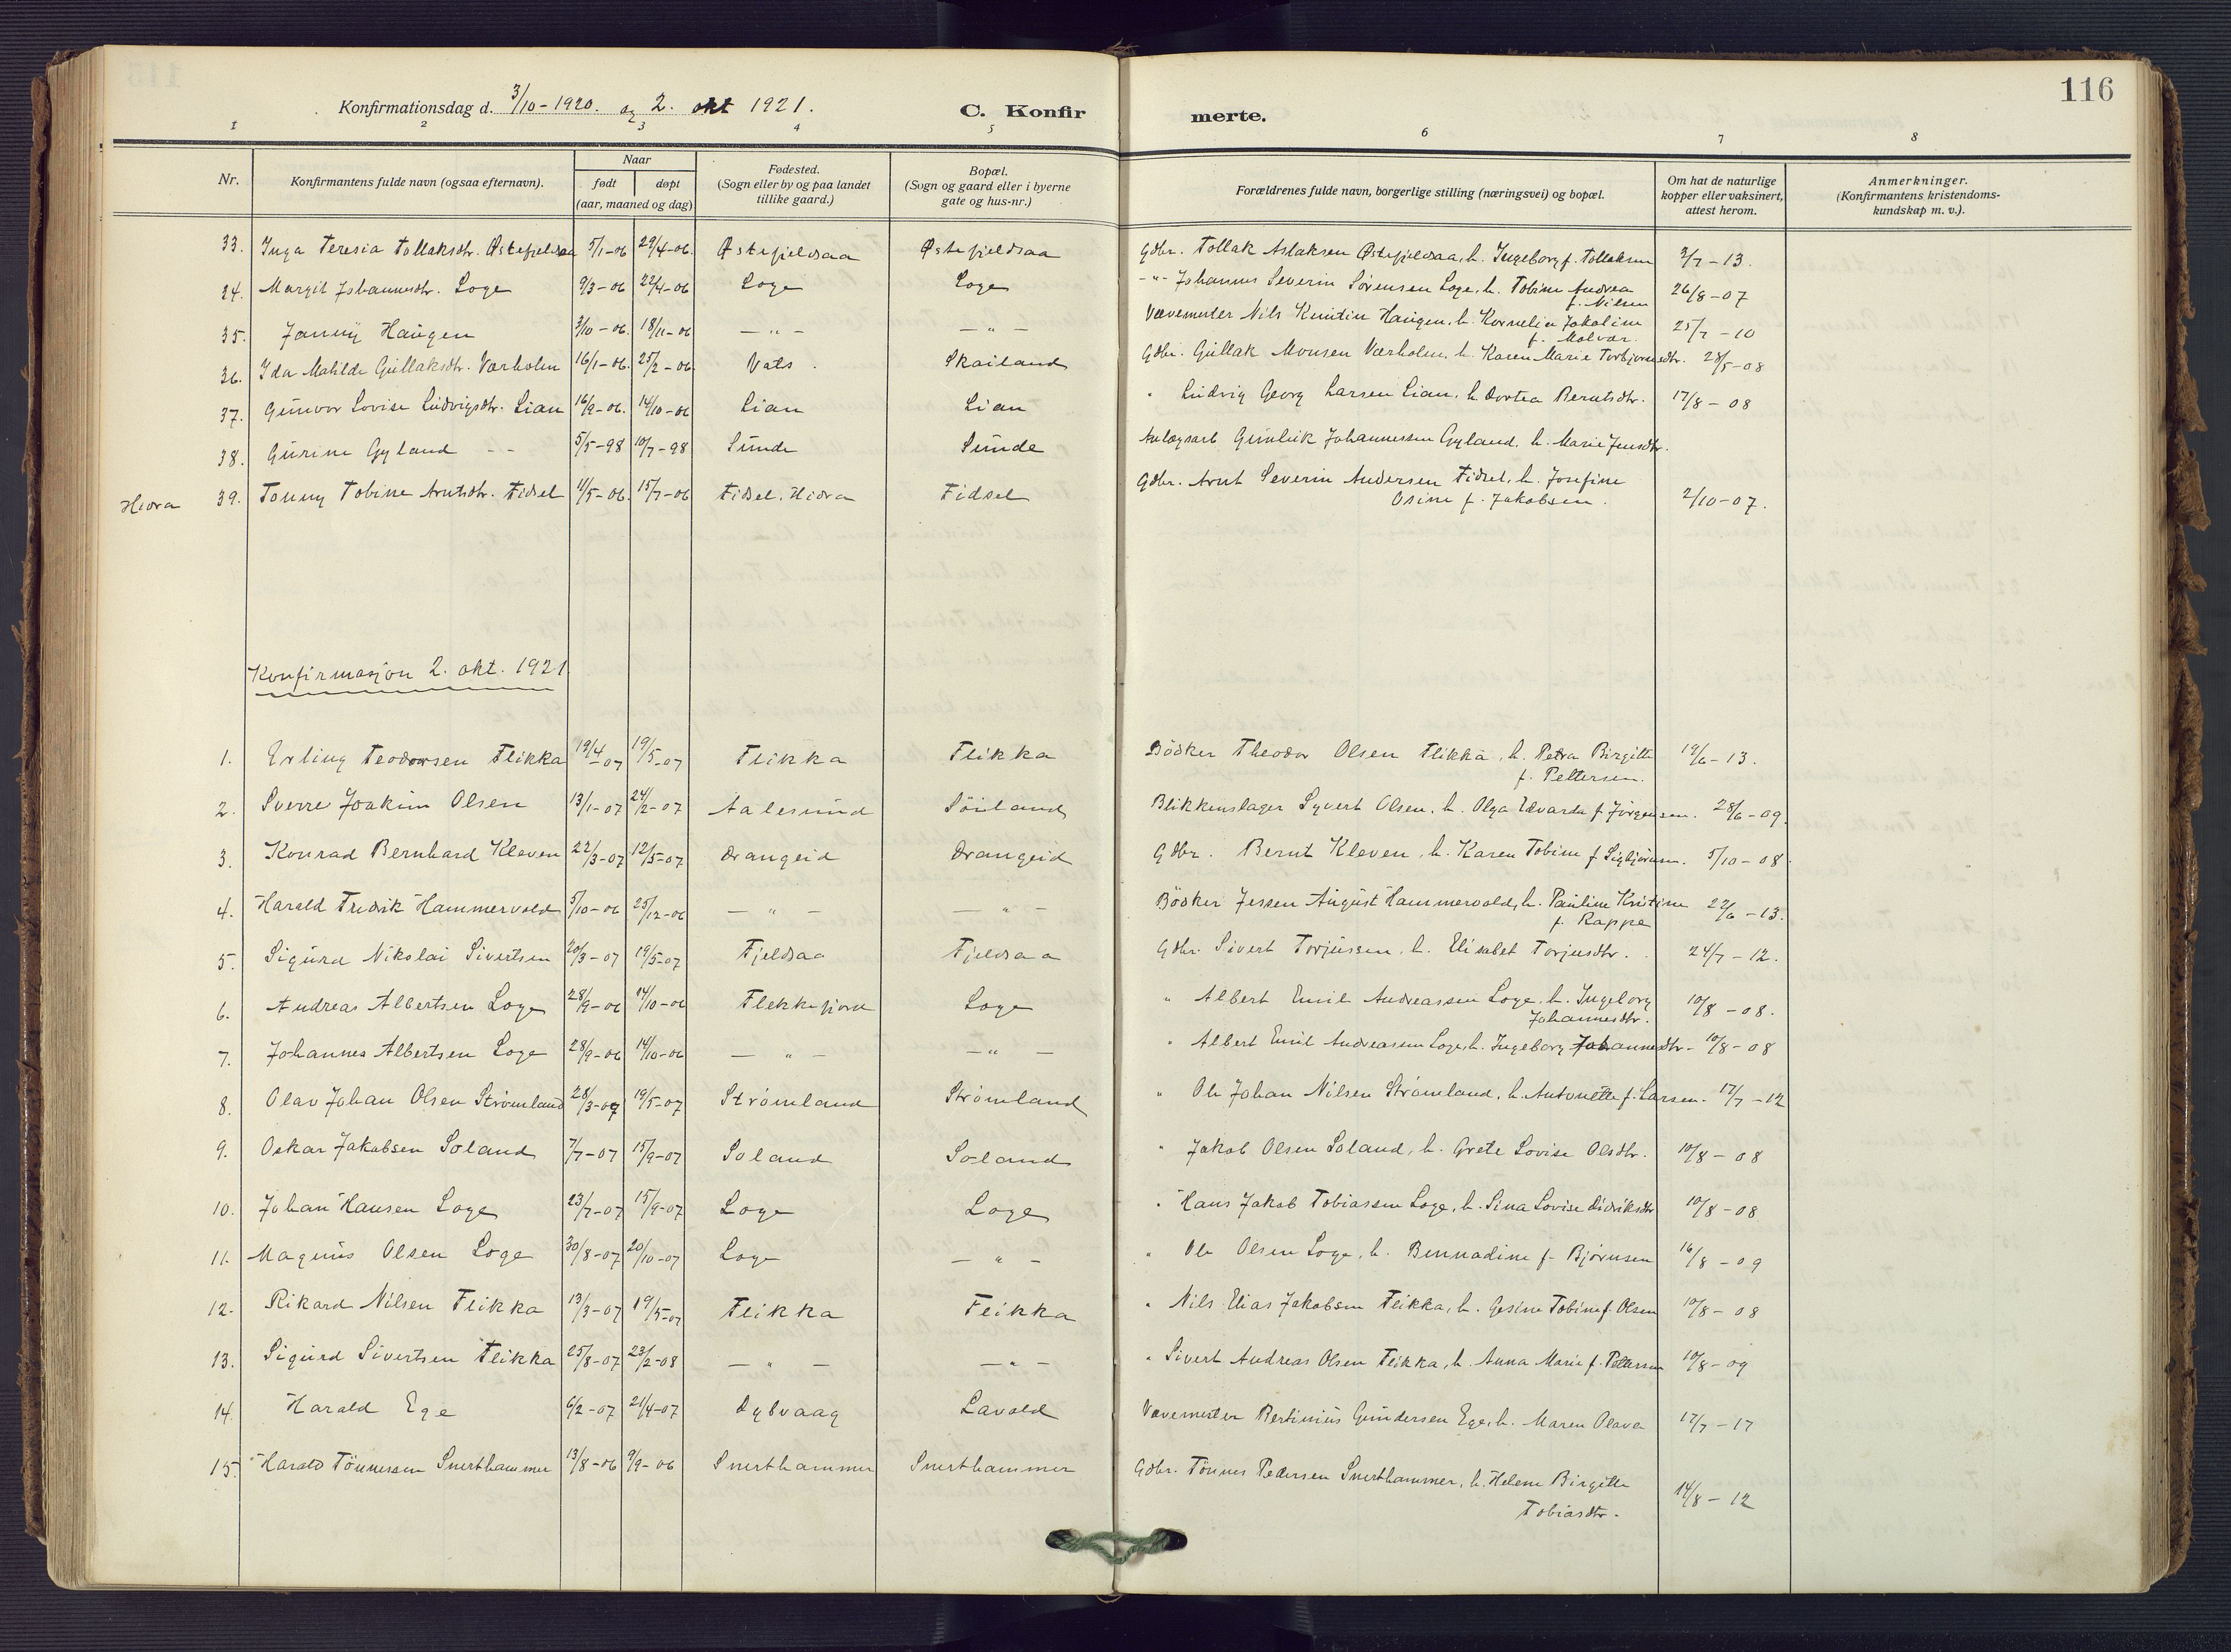 116
Konfirmationsdag d. 3/10-1920. og 2. okt 1921.
C. Konfir merte.
1 2 3 4 5 6 7 8
Nr. Konfirmantens fulde navn (ogsaa efternavn). Naar født døpt (aar, maaned og dag) Fødested. (Sogn eller by og paa landet tillike gaard.) Bopæl. (Sogn og gaard eller i byerne gate og hus-nr.) Forældrenes fulde navn, borgerlige stilling (næringsvei) og bopæl. Om hat de naturlige kopper eller vaksinert, attest herom. Anmerkninger. (Konfirmantens kristendomskundskap m. v.).
33. Inga Teresia Tollaksdtr. Østefjeldsaa 5/1-06 29/4-06. Østefjeldsaa Østefjeldsaa Gdbr. Tollak Aslaksen Østefjeldsaa, h. Ingeborg f. Tollaksen 3/7-13.
34. Margit Johannesdtr. Loge 9/3-06 22/4-06 Loge Loge -"- Johannes Severin Sörensen Loge, h. Tobine Andrea f. Nilsen 26/8-07
35. Janny Haugen 3/10-06. 18/11-06 -"- -"- Vævemester Nils Haugen, h. Kornelia Jakobine f. Molvær. 25/7-10
36. Ida Matilde Gullaksdtr. Værholm 16/1-06. 25/2-06. Vats. Skailand Gdbr. Gullak Monsen Værholm, h. Karen Marie Torbjørnsdtr. 28/5-08
37. Gunvor Lovise Ludvigsdtr. Lian 16/9-06. 14/10-06 Lian Lian " Ludvig Georg Larsen Lian, h. Dortea Berntsdtr. 17/8-08
38. Gurine Gyland -- 5/5-98 10/7-98 Sunde Sunde Anlægsarb Gunleik Johannessen Gyland, h. Marie Jensdtr.
Hidra 39. Tonny Tobine Arntsdtr. Fidsel 11/5-06. 15/7-06 Fidsel, Hidra Fidsel Gdbr. Arnt Severin Andersen Fidsel, h. Josefine Osine f. Jakobsen. 2/10-07.
Konfirmasjon 2. okt. 1921
1. Erling Teodorsen Flikka 19/4-07 19/5-07 Flikka Flikka Bödker Theodor Olsen Flikka, h. Petra Birgitte f. Pettersen. 19/6-13.
2. Sverre Joakim Olsen 13/1-07 24/2-07 Aalesund Söiland Blikkenslager Syvert Olsen, h. Olga Edvarda f. Jörgensen. 28/6-09.
3. Konrad Bernhard Kleven 22/3-07 12/5-07 Drangeid Drangeid Gdbr. Bernt Kleven, h. Karen Tobine f. Sigbjörnsen. 5/10-08.
4. Harald Fredrik Hammervold 5/10-06 25/12-06 -"- -"- Bödker Jessen August Hammervold, h. Pauline Kristine f. Rappe 22/6-13.
5. Sigurd Nikolai Sivertsen 20/3-07 19/5-07 Fjeldsaa Fjeldsaa Gdbr. Sivert Torjussen, h. Elisabet Torjusdtr. 24/7-12.
6. Andreas Albertsen Loge 28/9-06 14/10-06 Flekkefjord Loge " Albert Emil Andreassen Loge, h. Ingeborg Johannesdtr. 10/8-08.
7. Johannes Albertsen Loge 28/9-06 14/10-06 -"- -"- " Albert Emil Andreassen Loge, h. Ingeborg Johannesdtr- 10/8-08
8. Olav Johan Olsen Strömland 28/3-07 19/5-07 Strömland Strömland " Ole Johan Nilsen Strömland, h. Antonette f. Larsen. 17/7-12
9. Oskar Jakobsen Soland 7/7-07 15/9-07 Soland Soland " Jakob Olsen Soland, h. Grete Lovise Olsdtr. 10/8-08
10. Johan Hansen Loge 23/7-07 15/9-07 Loge Loge " Hans Jakob Tobiassen Loge, h. Sina Lovise Didriksdtr 10/8-08
11. Magnus Olsen Loge 30/8-07 20/10-07 Loge -"- " Ole Olsen Loge, h. Bernadine f. Björnsen 16/8-09
12. Rikard Nilsen Flikka 13/3-07 19/5-07 Flikka Flikka " Nils Elias Jakobsen Flikka, h. Gesine Tobine f. Olsen 10/8-08
13. Sigurd Sivertsen Flikka 25/8-07 23/2-08 -"- -"- " Sivert Andreas Olsen Flikka, h. Anna Marie f. Pettersen 10/8-09
14. Harald Ege 6/2-07 21/4-07 Dybvaag Lavold Vævemester Bertinius Gundersen Ege, h. Maren Olava 17/7-17
15. Harald Tönnessen Snerthammer 13/8-06 9/9-06 Snerthammer Snerthammer Gdbr. Tönnes Pedersen Snerthammer, h. Helene Birgitte Tobiasdtr. 14/8-12